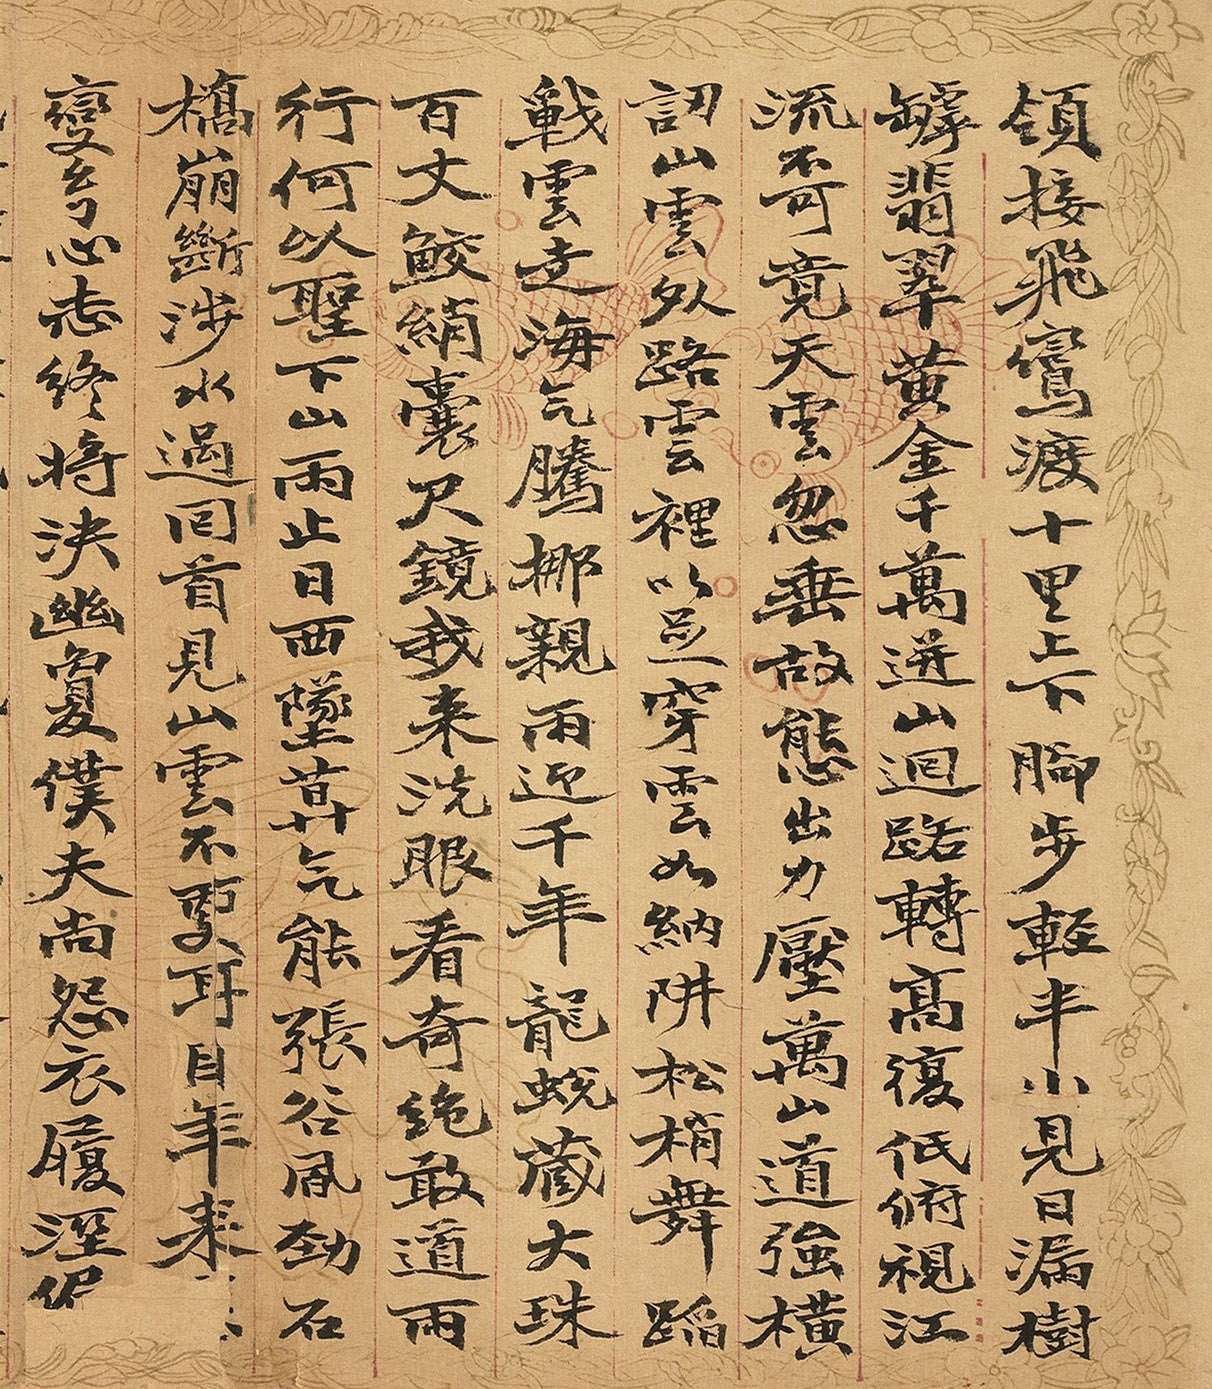 領接飛鸞渡十里上下腳步輕半小見日漏樹
罅翡翠黃金千萬迸山迴路轉高復低俯視江
流不可竟天雲忽垂故態出力壓萬山道強橫
訒山雲外路雲裡以足穿雲如納阱松梢舞蹈
戰雲走海气騰挪親雨迎千年龍蛻藏大珠
百丈鮫綃囊尺鏡我来洗眼看奇絶敢道雨
行何以聖下山雨止日西墜草气能張谷風勁石
橋崩斷涉水過回首見山雲不耳目年来
變心志終將決幽夐僕夫尚怨衣履溼